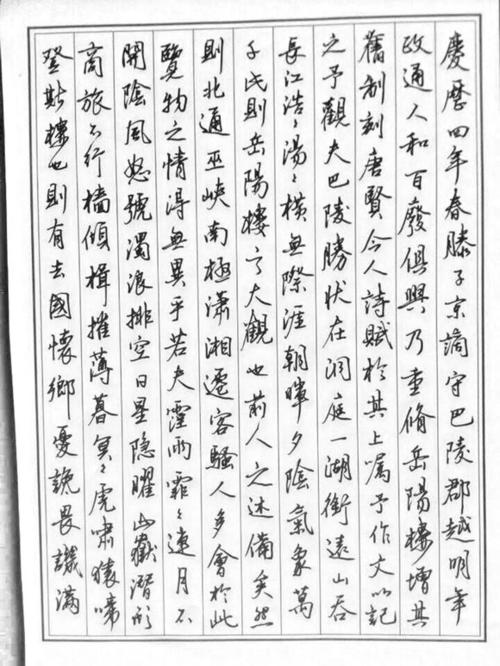 慶曆四年春滕子京謫守巴陵郡越明年
政通人和百廢俱興乃重脩岳陽樓增其
舊制刻唐賢今人詩賦於其上囑予作文以記
之予觀夫巴陵勝狀在洞庭一湖銜遠山吞
長江浩〻湯〻橫無際涯朝暉夕陰氣象萬
千此則岳陽樓之大觀也前人之述備矣然
則北通巫峽南極瀟湘遷客騷人多會於此
覽物之情得無異乎若夫霪雨霏〻連月不
開陰風怒號濁浪排空日星隱曜山嶽潛形
商旅不行檣傾楫摧薄暮冥〻虎嘯猿啼
登斯樓也則有去國懷鄉憂讒畏譏滿